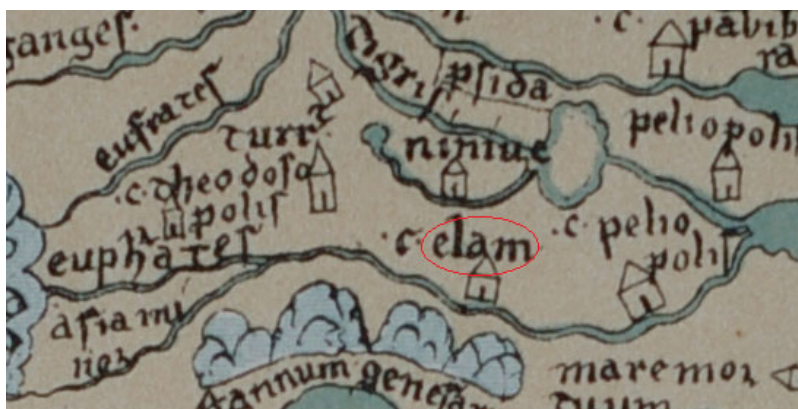 ganges
tigris
psida
c.
pabib
ra
eufrates
turris
niniue
peliopolis
.c. theodoso
polis
euphates
.c. elam
.c. pelio
polis
asia mi
nor
mare mor
tuum